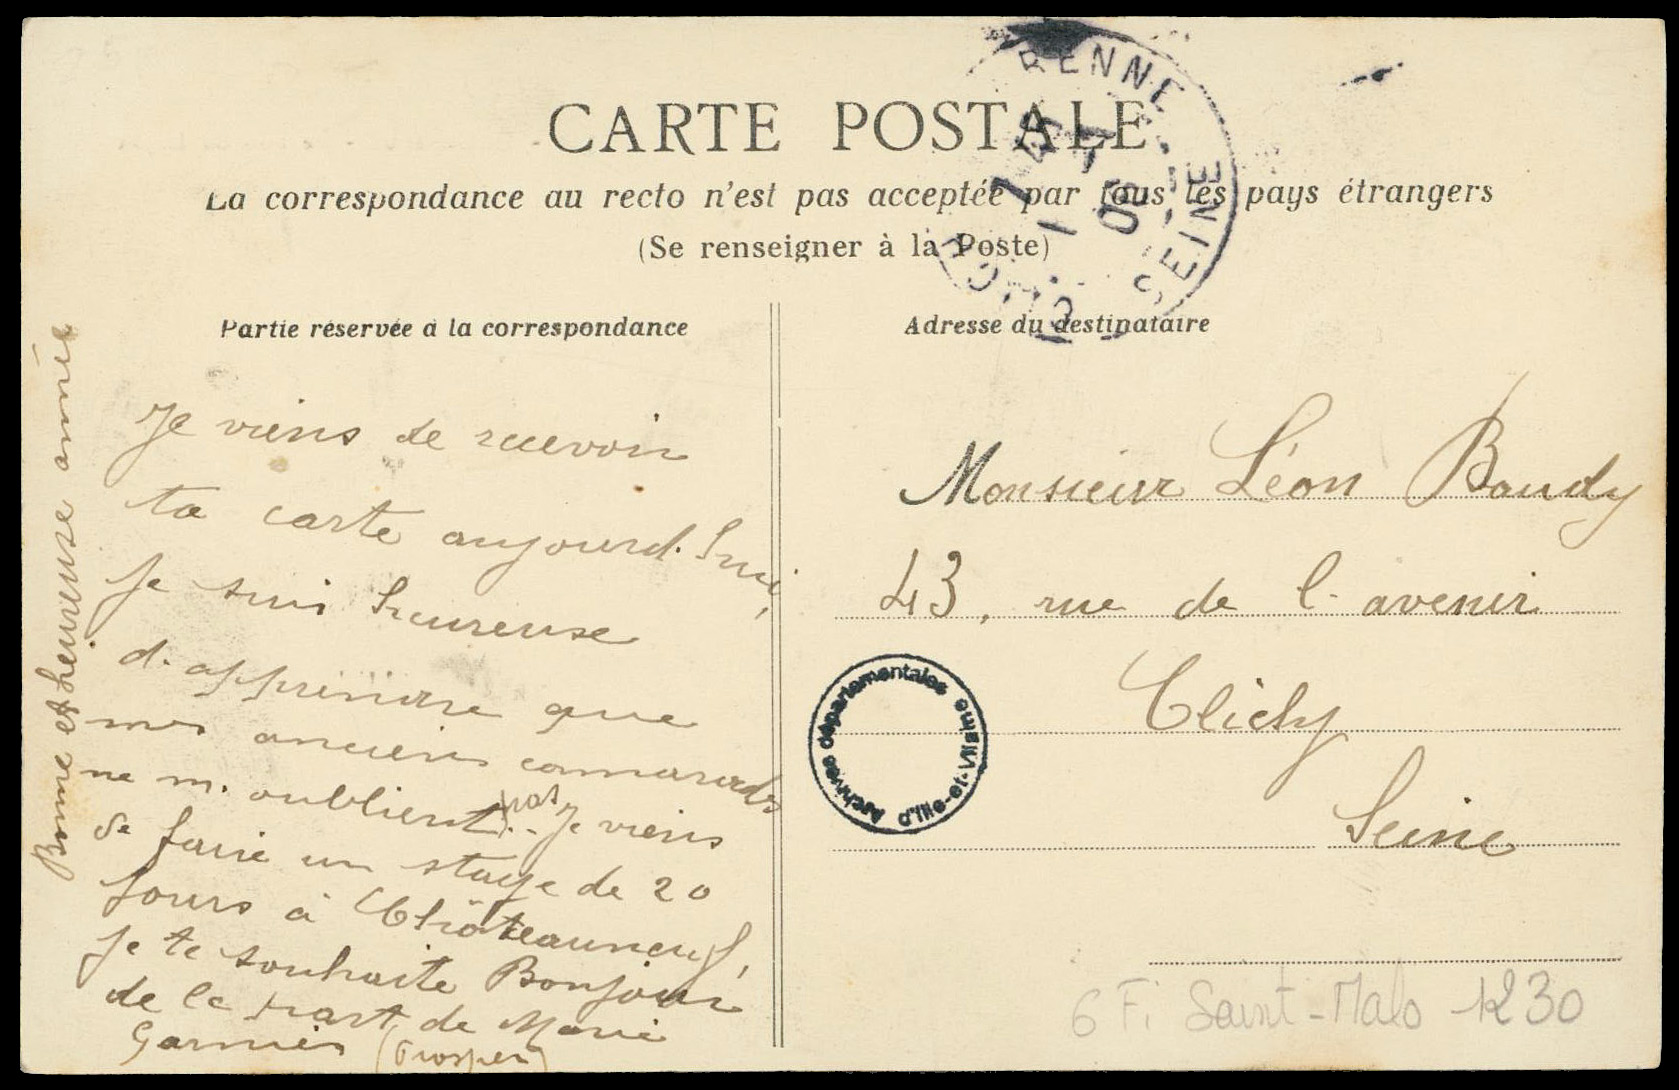 CARTE POSTALE
La correspondance au recto n'est pas acceptée par tous les pays étrangers
(Se renseigner à la Poste)
Partie réservée à la correspondance
Je viens de recevoir
ta carte aujourd'hui,
je suis heureuse
d'apprendre que
mes anciens camarades
ne m'oublient pas. Je viens
de faire un stage de 20
jours à Châteauneuf,
je te souhaite Bonjour
de la part de Marie
Garnier (Prosper)
Bonne et heureuse année
Adresse du destinataire
Monsieur Léon Baudy
43, rue de l'avenir
Clichy
Seine
GARENNE
SEINE
1 45
05
Archives départementales
d'Ille-et-Vilaine
6 Fi Saint-Malo 1230